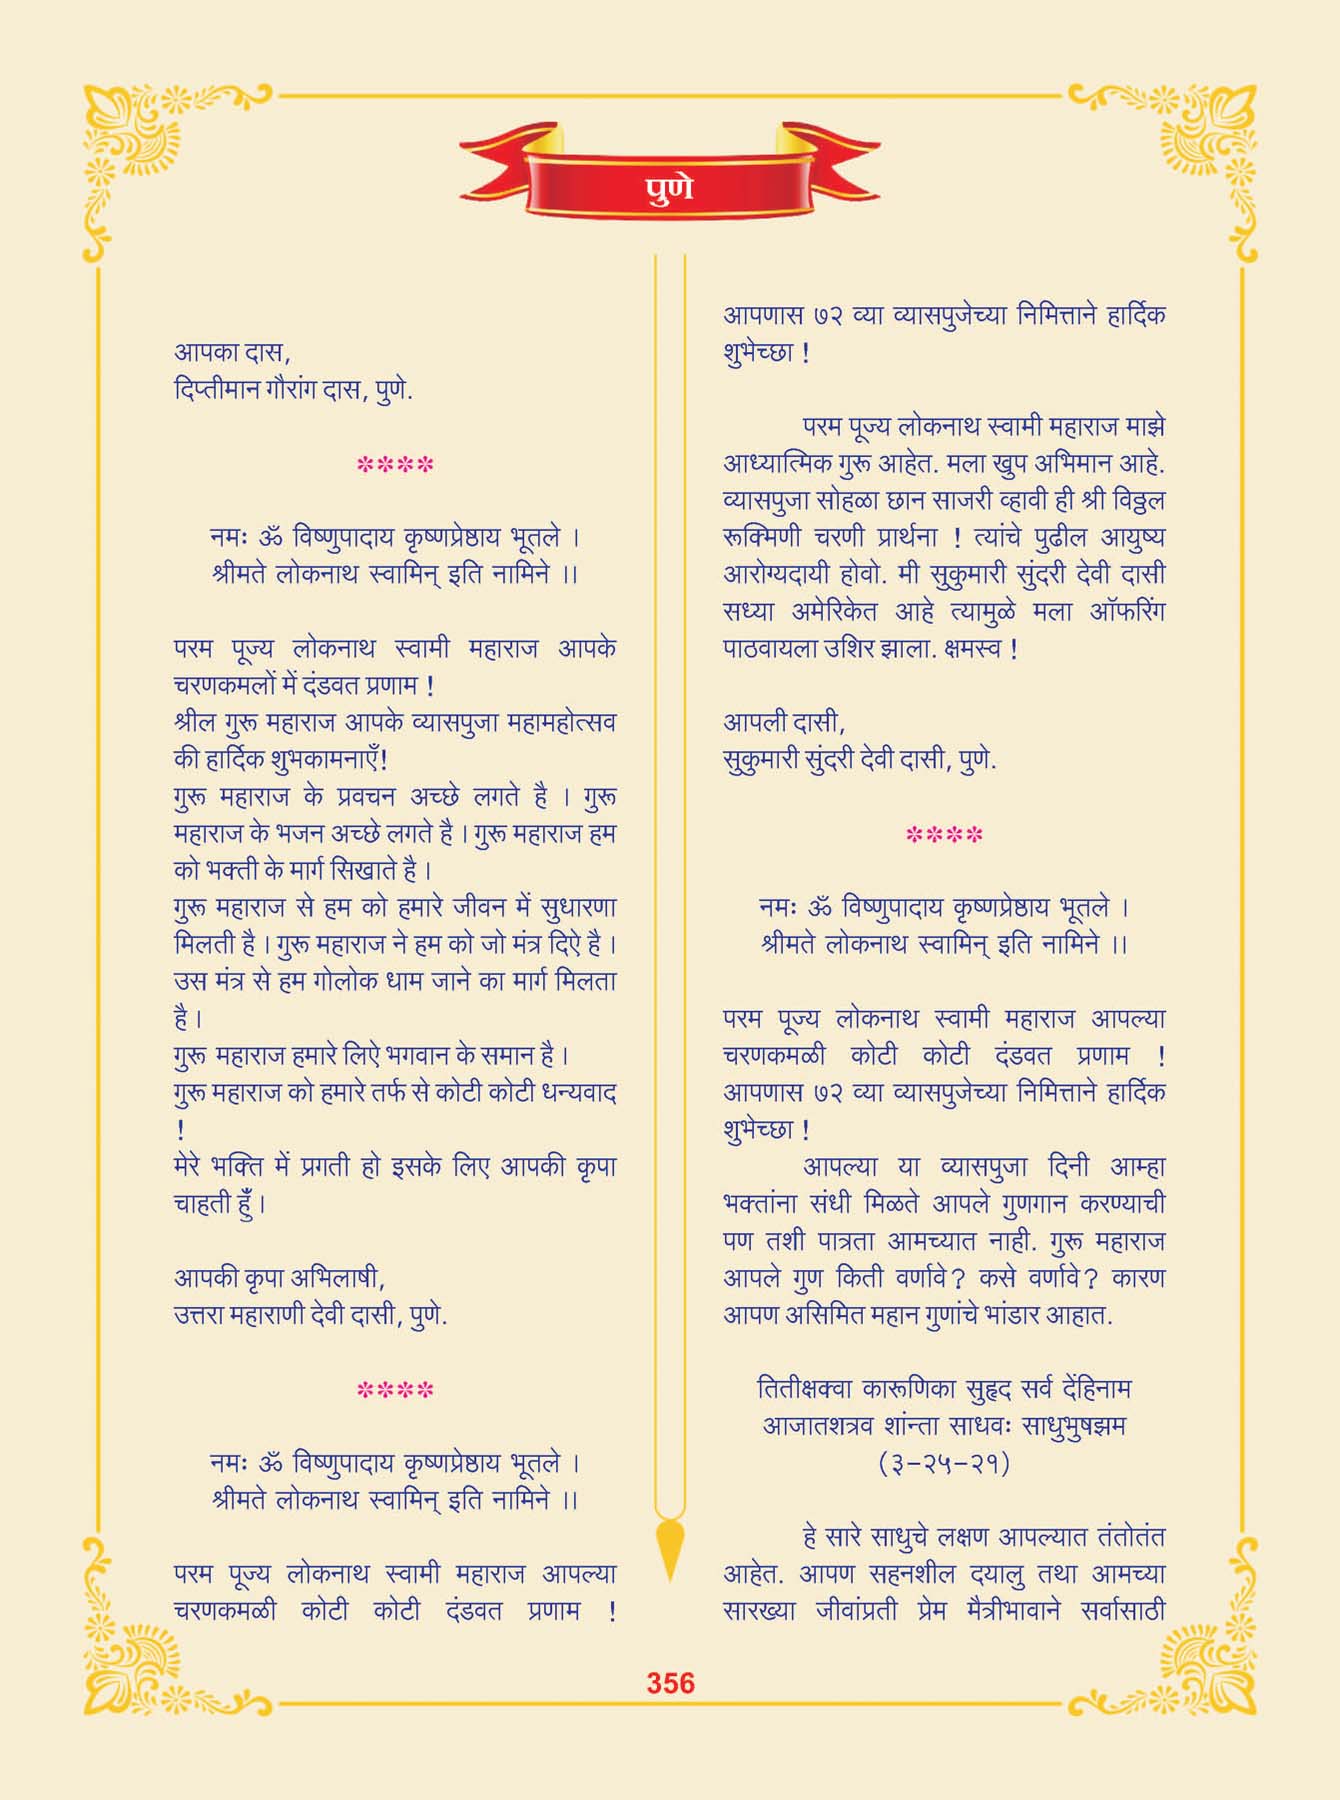 पुणे
आपका दास,
दिप्तीमान गौरांग दास, पुणे.
****
नमः ॐ विष्णुपादाय कृष्णप्रेष्ठाय भूतले ।
श्रीमते लोकनाथ स्वामिन् इति नामिने ।।
परम पूज्य लोकनाथ स्वामी महाराज आपके
चरणकमलों में दंडवत प्रणाम !
श्रील गुरू महाराज आपके व्यासपुजा महामहोत्सव
की हार्दिक शुभकामनाएँ!
गुरू महाराज के प्रवचन अच्छे लगते है । गुरू
महाराज के भजन अच्छे लगते है । गुरू महाराज हम
को भक्ती के मार्ग सिखाते है ।
गुरू महाराज से हम को हमारे जीवन में सुधारणा
मिलती है । गुरू महाराज ने हम को जो मंत्र दिऐ है ।
उस मंत्र से हम गोलोक धाम जाने का मार्ग मिलता
है ।
गुरू महाराज हमारे लिऐ भगवान के समान है ।
गुरू महाराज को हमारे तर्फ से कोटी कोटी धन्यवाद
!
मेरे भक्ति में प्रगती हो इसके लिए आपकी कृपा
चाहती हुँ ।
आपकी कृपा अभिलाषी,
उत्तरा महाराणी देवी दासी, पुणे.
****
नमः ॐ विष्णुपादाय कृष्णप्रेष्ठाय भूतले ।
श्रीमते लोकनाथ स्वामिन् इति नामिने ।।
परम पूज्य लोकनाथ स्वामी महाराज आपल्या
चरणकमळी कोटी कोटी दंडवत प्रणाम !
आपणास ७२ व्या व्यासपुजेच्या निमित्ताने हार्दिक
शुभेच्छा !
परम पूज्य लोकनाथ स्वामी महाराज माझे
आध्यात्मिक गुरू आहेत. मला खुप अभिमान आहे.
व्यासपुजा सोहळा छान साजरी व्हावी ही श्री विठ्ठल
रूक्मिणी चरणी प्रार्थना ! त्यांचे पुढील आयुष्य
आरोग्यदायी होवो. मी सुकुमारी सुंदरी देवी दासी
सध्या अमेरिकेत आहे त्यामुळे मला ऑफरिंग
पाठवायला उशिर झाला. क्षमस्व !
आपली दासी,
सुकुमारी सुंदरी देवी दासी, पुणे.
****
नमः ॐ विष्णुपादाय कृष्णप्रेष्ठाय भूतले ।
श्रीमते लोकनाथ स्वामिन् इति नामिने ।।
परम पूज्य लोकनाथ स्वामी महाराज आपल्या
चरणकमळी कोटी कोटी दंडवत प्रणाम !
आपणास ७२ व्या व्यासपुजेच्या निमित्ताने हार्दिक
शुभेच्छा !
आपल्या या व्यासपुजा दिनी आम्हा
भक्तांना संधी मिळते आपले गुणगान करण्याची
पण तशी पात्रता आमच्यात नाही. गुरू महाराज
आपले गुण किती वर्णावे? कसे वर्णावे? कारण
आपण असिमित महान गुणांचे भांडार आहात.
तितीक्षक्वा कारूणिका सुहृद सर्व देंहिनाम
आजातशत्रव शांन्ता साधवः साधुभुषझम
(३-२५-२१)
हे सारे साधुचे लक्षण आपल्यात तंतोतंत
आहेत. आपण सहनशील दयालु तथा आमच्या
सारख्या जीवांप्रती प्रेम मैत्रीभावाने सर्वासाठी
356